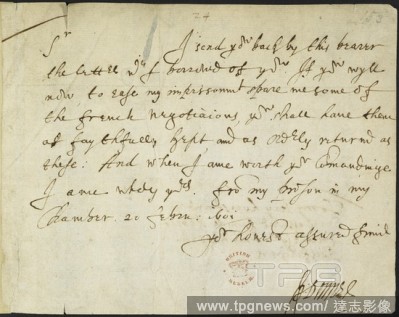 24
Sr
I send yow back by this bearer
the lettel wch I borrowed of yow. If yow wyll
now, to ease my imprisonmt spare me some of
the french negotiacions, yow shall have them
as faythfully kept and as orderly returned as
these: And when I ame worth yr Comandinge
I ame wholy yrs. from my Prison in my
Chamber. 20 Febru. 1601
yr honest assured frind
BRITISH
MUSEUM
TPG
www.tpgnews.com / 達志影像